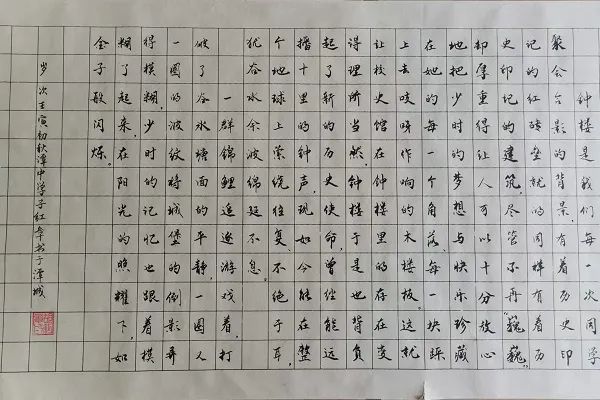 钟楼是我们每一次同学
聚会合影的背景。有历史印
记的红砖垒就的同样有着历
史印记的建筑,尽管不再“巍巍”,
却厚重得让人可以十分放心
地把少时的梦想与快乐珍藏
在她的每一个角落。每一块踩
上去吱呀作响的木楼板,这就
让校史馆在钟楼里的存在变
得理所当然。钟楼于是也背负
起了新的历史使命,曾经能远
播十里的钟声,现如今能在整
个地球上萦绕往复,不绝于耳,
犹在水余波绵延不息。
一群锦鲤逍遥游戏着,打
破了谷水塘面的平静,一圈
一圈的波纹将城堡的倒影弄
得模糊,少时的记忆也跟着模
糊了起来,在阳光的照耀下,如
金子般闪烁。
岁次壬寅初秋潭中学子红年书于潭城